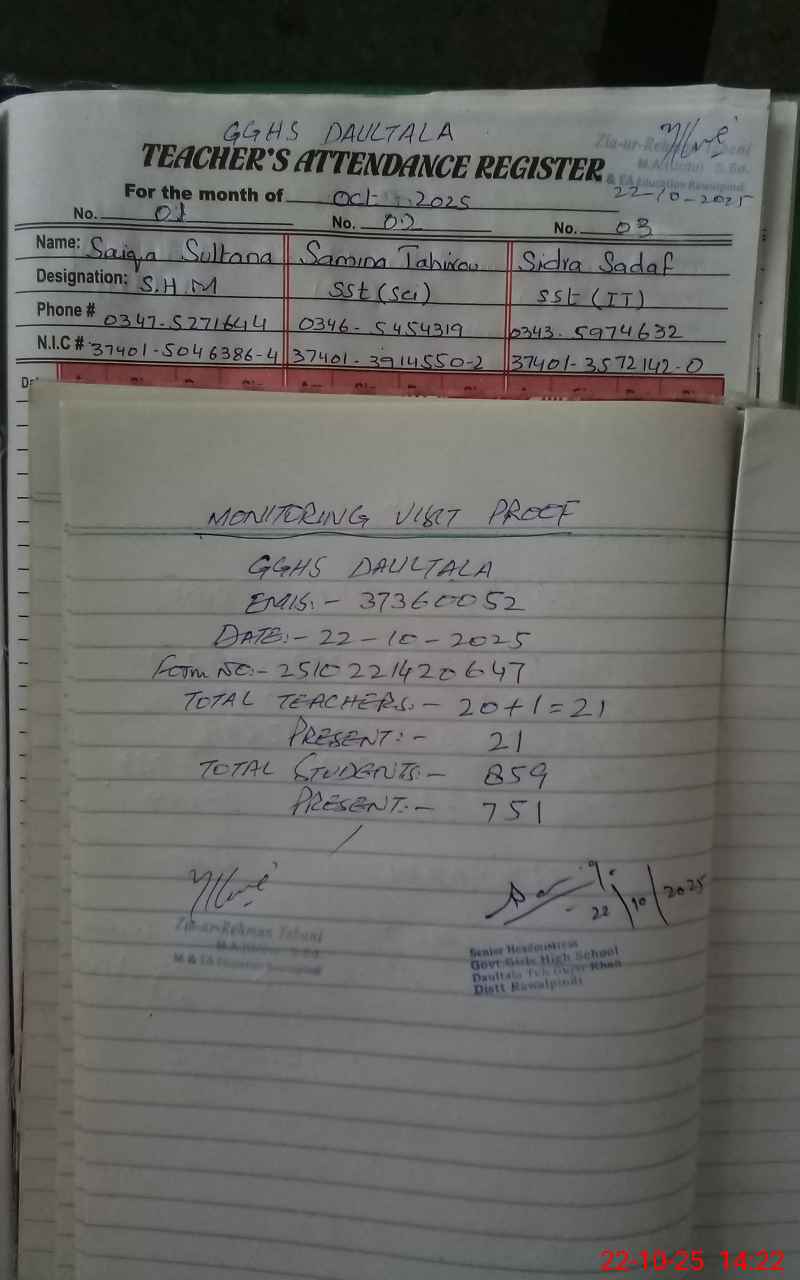 GGHS DAULTALA
TEACHER'S ATTENDANCE REGISTER
For the month of Oct 2025
22-10-2025
No. 01 No. 02 No. 03
Name: Saiqa Sultana Samina Tahira Sidra Sadaf
Designation: S.H.M SSt (Sci) SSt (IT)
Phone # 0347-5271644 0346-5454319 0343-5974632
N.I.C # 37401-5046386-4 37401-3914550-2 37401-3572142-0
MONITORING VISIT PROOF
GGHS DAULTALA
EMIS:- 37360052
DATE:- 22-10-2025
Form NO:- 2510221420647
TOTAL TEACHERS:- 20+1=21
PRESENT:- 21
TOTAL STUDENTS:- 859
PRESENT:- 751
22/10/2025
Zia-ur-Rehman
Senior Headmistress
Govt Girls High School
Daultala Teh Gujar Khan
Distt Rawalpindi
22-10-25 14:22